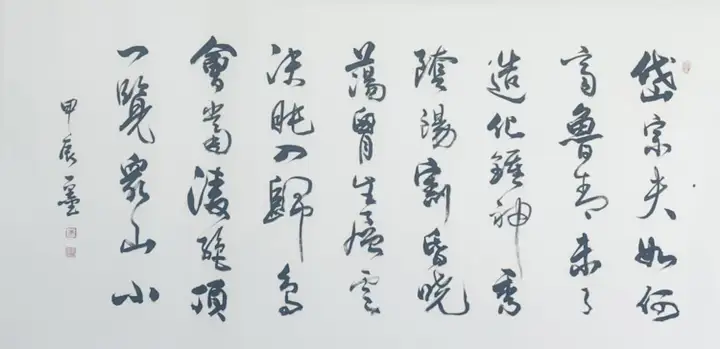 岱宗夫如何
齊魯青未了
造化鍾神秀
陰陽割昏曉
蕩胷生層雲
決眥入歸鳥
會當凌絕頂
一覽眾山小
甲辰 墨